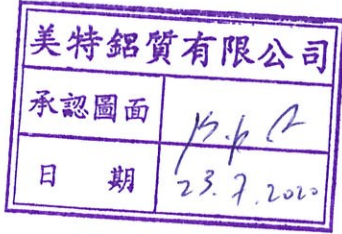 美特鋁質有限公司
承認圖面
日 期 23.7.2020